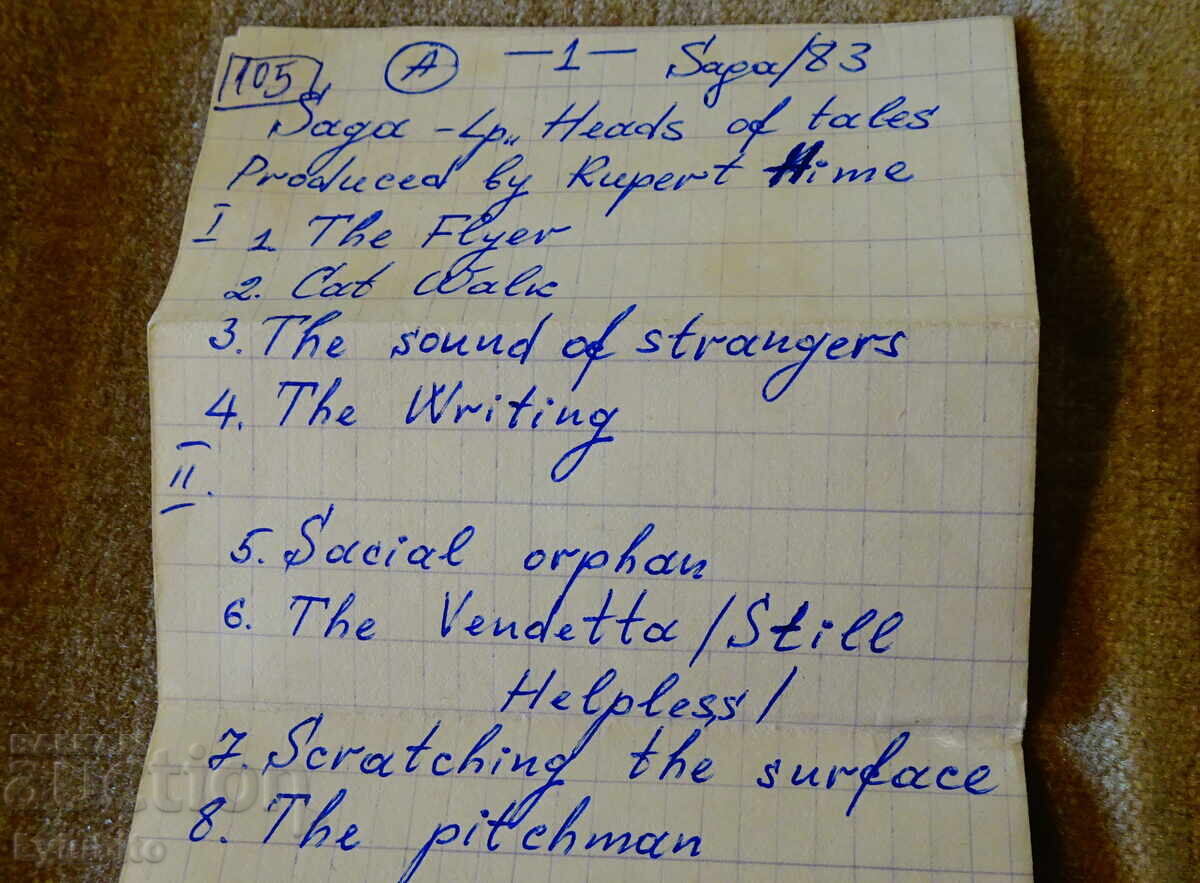 105 A —1— Saga/83
Saga - Lp„ Heads of tales
Produced by Rupert Hime
I 1. The Flyer
2. Cat Walk
3. The sound of strangers
4. The Writing
II.
5. Sacial orphan
6. The Vendetta /Still
Helpless/
7. Scratching the surface
8. The pitchman
auction